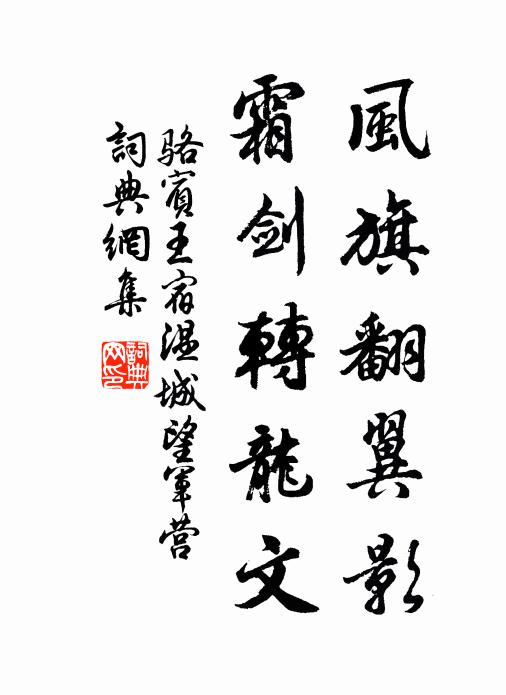 風旗翻翼影
霜劍轉龍文
駱賓王宿溫城望軍營
詞典網集
詞典
网印